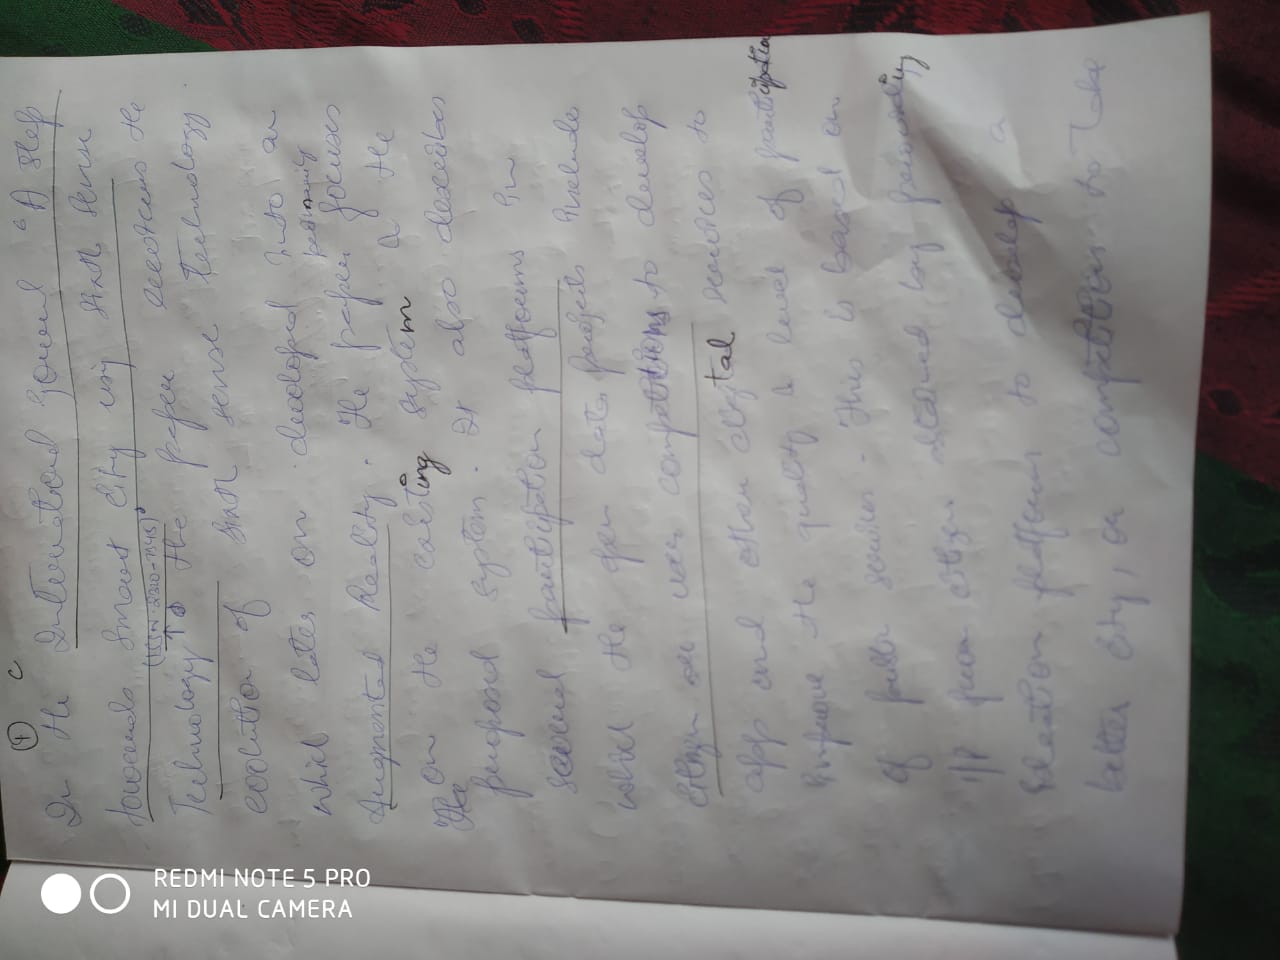 7 C
In the International Journal "A step
towards Smart City using Sixth Sense
(ISSN-2320-7345)
Technology" The paper describes the
evolution of Sixth sense Technology.
which later on developed into an
Augmented Reality. The paper focuses
on the existing system a the
The proposed system. It also describes
several participation platforms in
which the open data projects include
citizen or user competitions to develop
app and other digital services to
improve the quality a level of participation
of public services. This is based on
i/p from citizens by
platform to develop a
better city, or competition to
REDMI NOTE 5 PRO
MI DUAL CAMERA